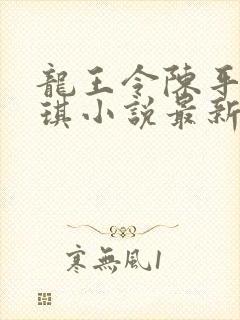 龍王令陳平
琪小說最新
寒無風1